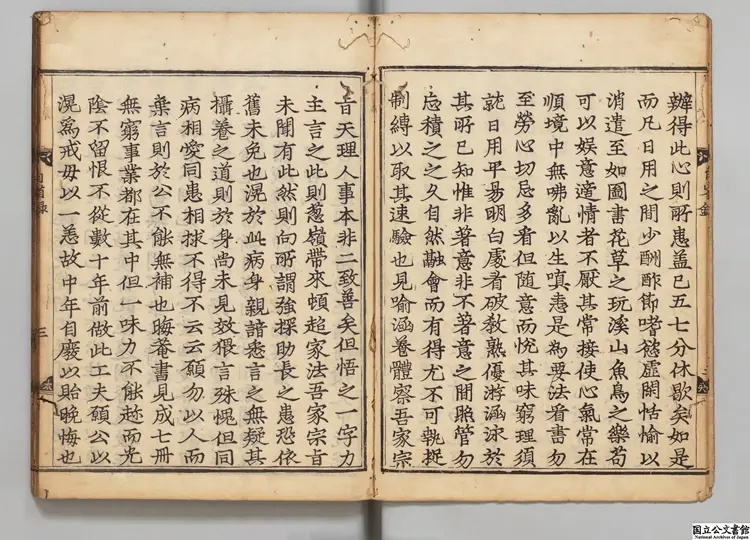 辦得此心則所患蓋已五七分休歇矣如是
而凡日用之間少酬酢節嗜慾虛閑恬愉以
消遣至如圖書花草之玩溪山魚鳥之樂苟
可以娛意適情者不厭其常接使心氣常在
順境中無咈亂以生嗔恚是為要法看書勿
至勞心切忌多看但隨意而悅其味窮理須
就日用平易明白處看破教熟優游涵泳於
其所已知惟非著意非不著意之間照管勿
忘積之之久自然融會而有得尤不可執捉
制縛以取其速驗也見喻涵養體察吾家宗
旨天理人事本非二致善矣但悟之一字力
主言之此則葱嶺帶來頓超家法吾家宗旨
未聞有此然則向所謂強探助長之患恐依
舊未免也滉於此病身親諳悉言之無疑其
攝養之道則於身尚未見效猥言殊愧但同
病相愛同患相捄不得不云云願勿以人而
棄言則於公不能無補也晦菴書見成七冊
無窮事業都在其中但一味力不能趂而光
陰不留恨不從數十年前做此工夫願公以
滉為戒毋以一恙故中年自廢以貽晚悔也
自省錄
三
國立公文書館
National Archives of Japan